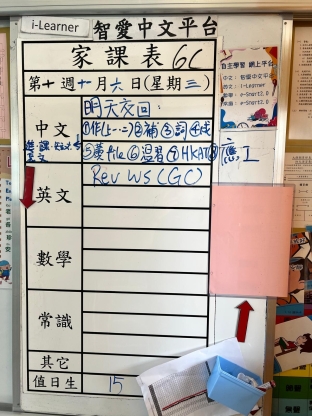 i-Learner 智愛中文平台
家課表 6C
第十週十一月六日(星期三)
自主學習 網上平台
中文：智愛中文平台
英文：i-Learner
數學：e-Smart2.0
常識：e-Smart2.0
明天交回：
中文
①作(上一、二)②補③詞④成
⑤黃file⑥溫習⑦HKAT⑧
英文
Rev WS (GC)
數學
常識
其它
值日生 15